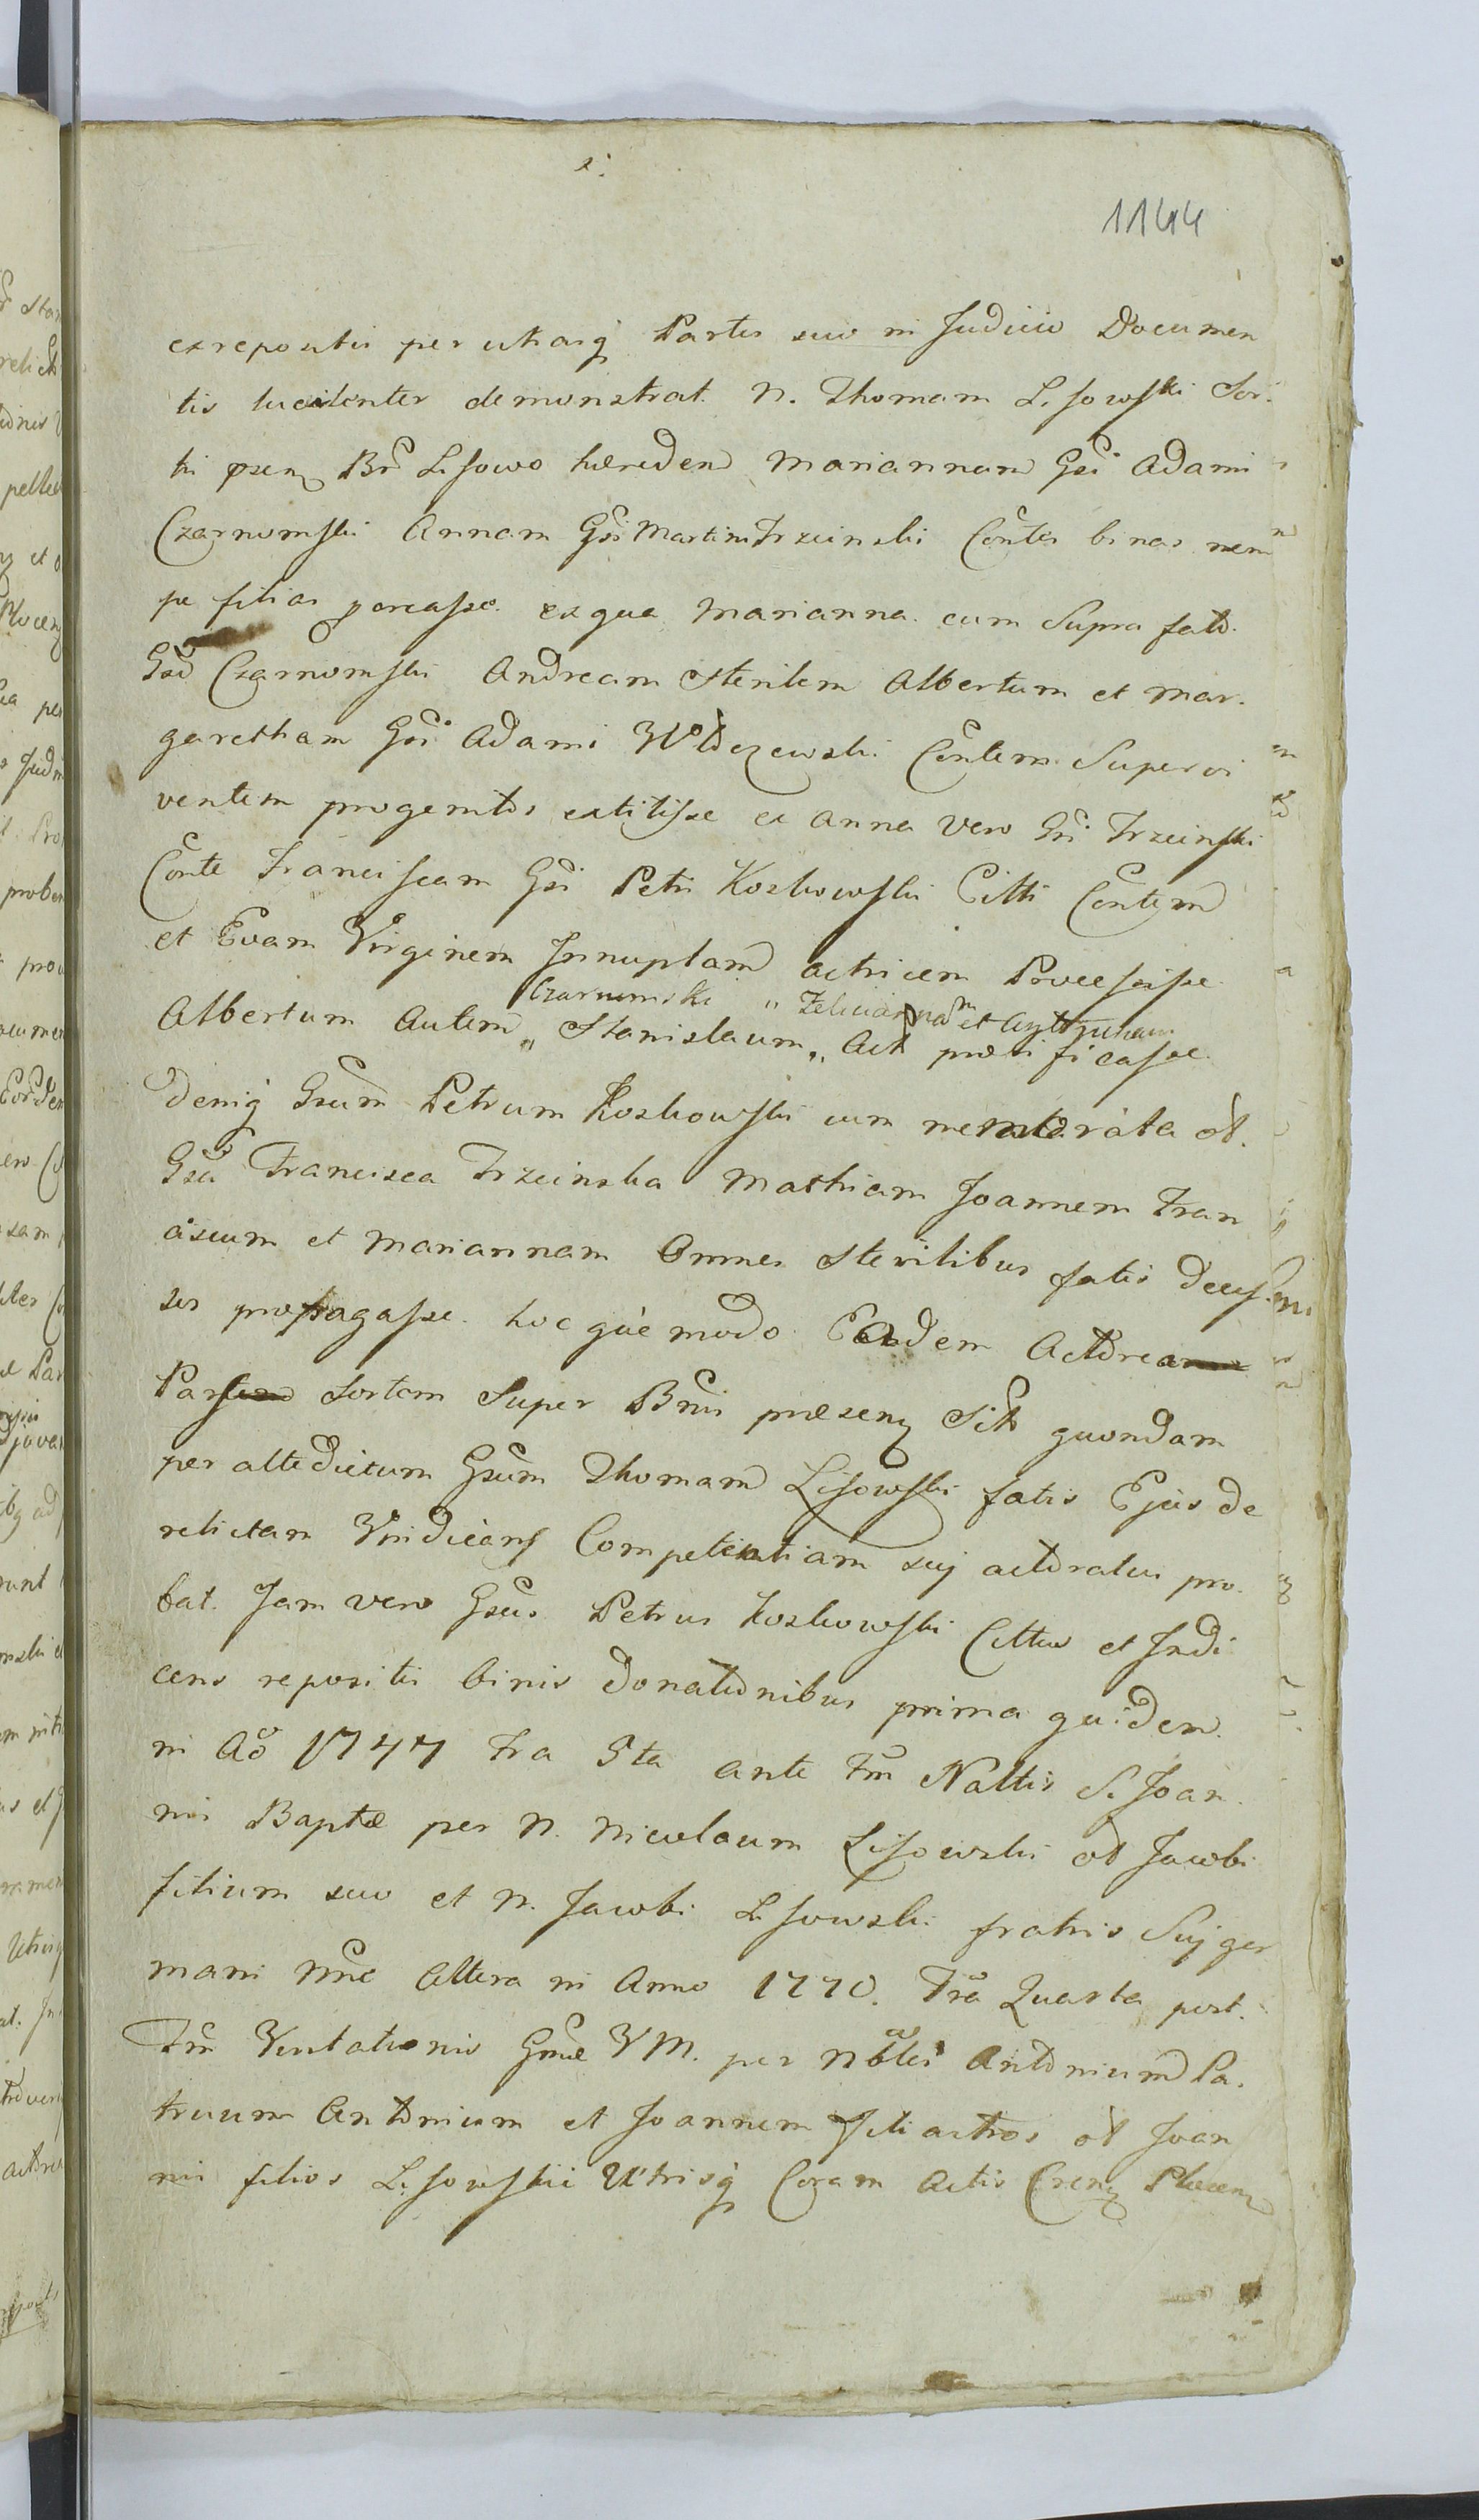 1144
ex repositis per utramq Partes suis in Judicio Documen
tis luculenter demonstrat. N. Thomam Lisowski Sor:
tis psenq Br Lisowo hæredem Mariannam Gsi Adami
Czarnomski Annam Gsi Martini Trzcinski Contes binas nem
pe filias procasse. ex qua Marianna. cum Supra fato.
Gso Czarnomski Andream Sterilem Albertum et Mar.
garetham Gsi Adami Contem. Supervi
ventem progenitos extitisse ex Anna vero Gsi Trzcinski
Conte Franciscam Gsi Petri Kozkowski Citti Contem
et Evam Virginem Innuptam actricem Processisse.
Czarnomski " Feliciannam et
Albertum Autem „ Stanislaum „ Act
Deniq Gsum Petrum Kozkowski cum memorata ol.
Gsa Francisca Trzcinska Mathiam Joannem Fran
ciscum et Mariannam Omnes sterilibus fatis Decess.
ses propagasse. hocque modo Eadem Actorea
Pars Sortem Super Bnis præsenq Sitt quondam
per altedictum Gsum Thomam Lisowski fatis Ejus de
relictam Vindicans Competentiam sui actoratus pro.
bat. Jam vero Gsus Petrus Kozkowski Cittus et Indi
cens repositis binis Donationibus prima quidem.
in Ao 1747 Fra 5ta ante Fm Nattis S. Joan.
nis Baptæ per N. Nicolaum Lisowski ol Jacobi
filium suo et N. Jacobi Lisowski fratris Sui ger
mani nnē Altera in Anno 1770. Fra Quarta post.
Fm Visitationis Gmæ V M. per Nobles Antonium Pa.
truum Antonium et Joannem Filiastros ol Joan
nis filios Lisowskii Utrisq Coram Actis Crenq Plocenq